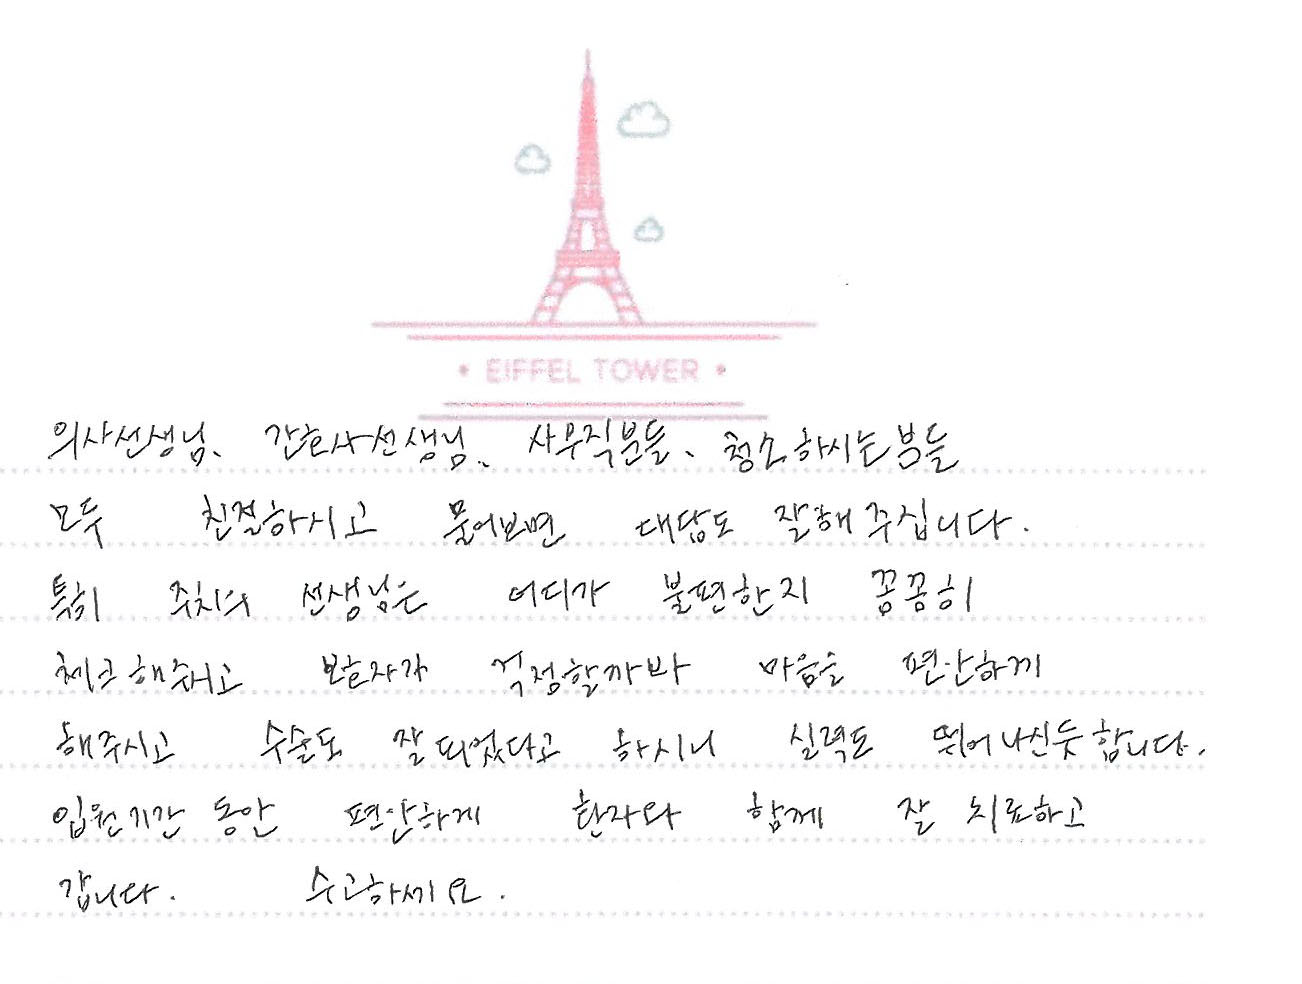 EIFFEL TOWER
의사선생님、 간호사선생님、 사무직분들、 청소하시는분들
모두 친절하시고 물어보면 대답도 잘해주십니다.
특히 주치의 선생님은 어디가 불편한지 꼼꼼히
체크해주시고 보호자가 걱정할까바 마음을 편안하게
해주시고 수술도 잘되었다고 하시니 실력도 뛰어나신듯합니다.
입원기간 동안 편안하게 환자와 함께 잘 치료하고
갑니다. 수고하세요.